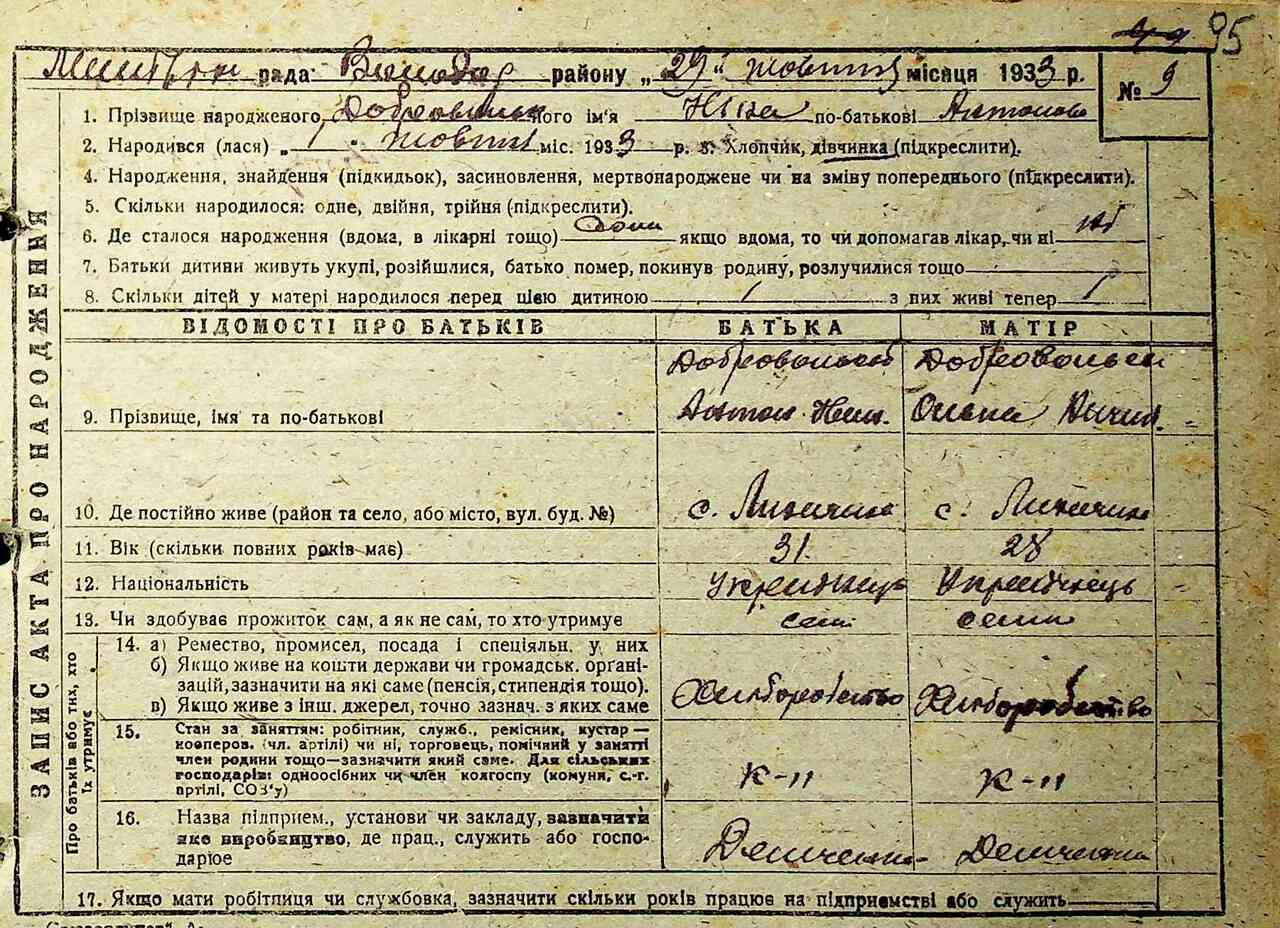 95
рада району „29“ жовтня місяця 1933 р.
№ 9
ЗАПИС АКТА ПРО НАРОДЖЕННЯ
1. Прізвище народженого, його ім'я Ніна по-батькові Антонова
2. Народився (лася) „1“ жовтня міс. 1933 р. 3. Хлопчик, дівчинка (підкреслити).
4. Народження, знайдення (підкидьок), засиновлення, мертвонароджене чи на зміну попереднього (підкреслити).
5. Скільки народилося: одне, двійня, трійня (підкреслити).
6. Де сталося народження (вдома, в лікарні тощо) дома якщо вдома, то чи допомагав лікар, чи ні ні
7. Батьки дитини живуть укупі, розійшлися, батько помер, покинув родину, розлучилися тощо
8. Скільки дітей у матері народилося перед цією дитиною 1 з них живі тепер 1
ВІДОМОСТІ ПРО БАТЬКІВ БАТЬКА МАТІР
Добровольськ Добровольськ
9. Прізвище, імя та по-батькові Антон Олена
10. Де постійно живе (район та село, або місто, вул. буд. №) с. с.
11. Вік (скільки повних років має) 31 28
12. Національність Українець Українець
13. Чи здобуває прожиток сам, а як не сам, то хто утримує сам сама
Про батьків або тих, хто їх утримує
14. а) Ремество, промисел, посада і спеціяльн. у них
б) Якщо живе на кошти держави чи громадськ. орґані-
зацій, зазначити на які саме (пенсія, стипендія тощо).
в) Якщо живе з інш. джерел, точно зазнач. з яких саме Хліборобство Хліборобство
15. Стан за заняттям: робітник, служб., ремісник, кустар—
кооперов. (чл. артілі) чи ні, торговець, помічний у занятті
член родини тощо—зазначити який саме. Для сільських
господарів: одноосібних чи член колгоспу (комуни, с.-г.
артілі, СОЗ'у) к-п к-п
16. Назва підприєм., установи чи закладу, зазначити
яке виробництво, де прац., служить або госпо-
дарює
17. Якщо мати робітниця чи службовка, зазначити скільки років працює на підприємстві або служить